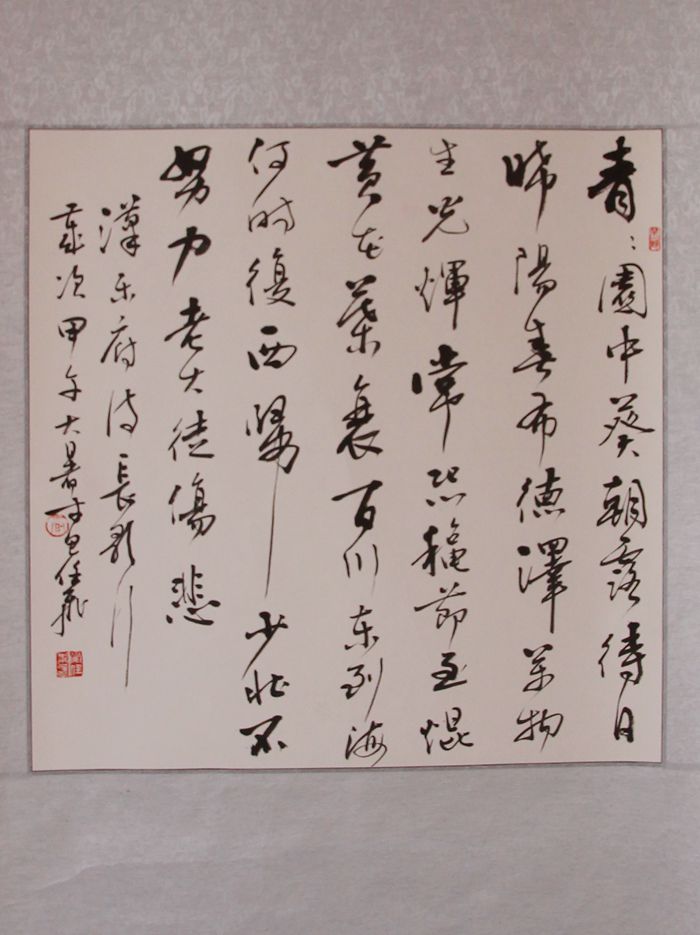 青〻園中葵朝露待日
晞陽春布德澤萬物
生光輝常恐穐節至焜
黄花葉衰百川東到海
何時復西歸少壯不
努力老大徒傷悲
漢樂府詩長歌行
歲次甲午大暑